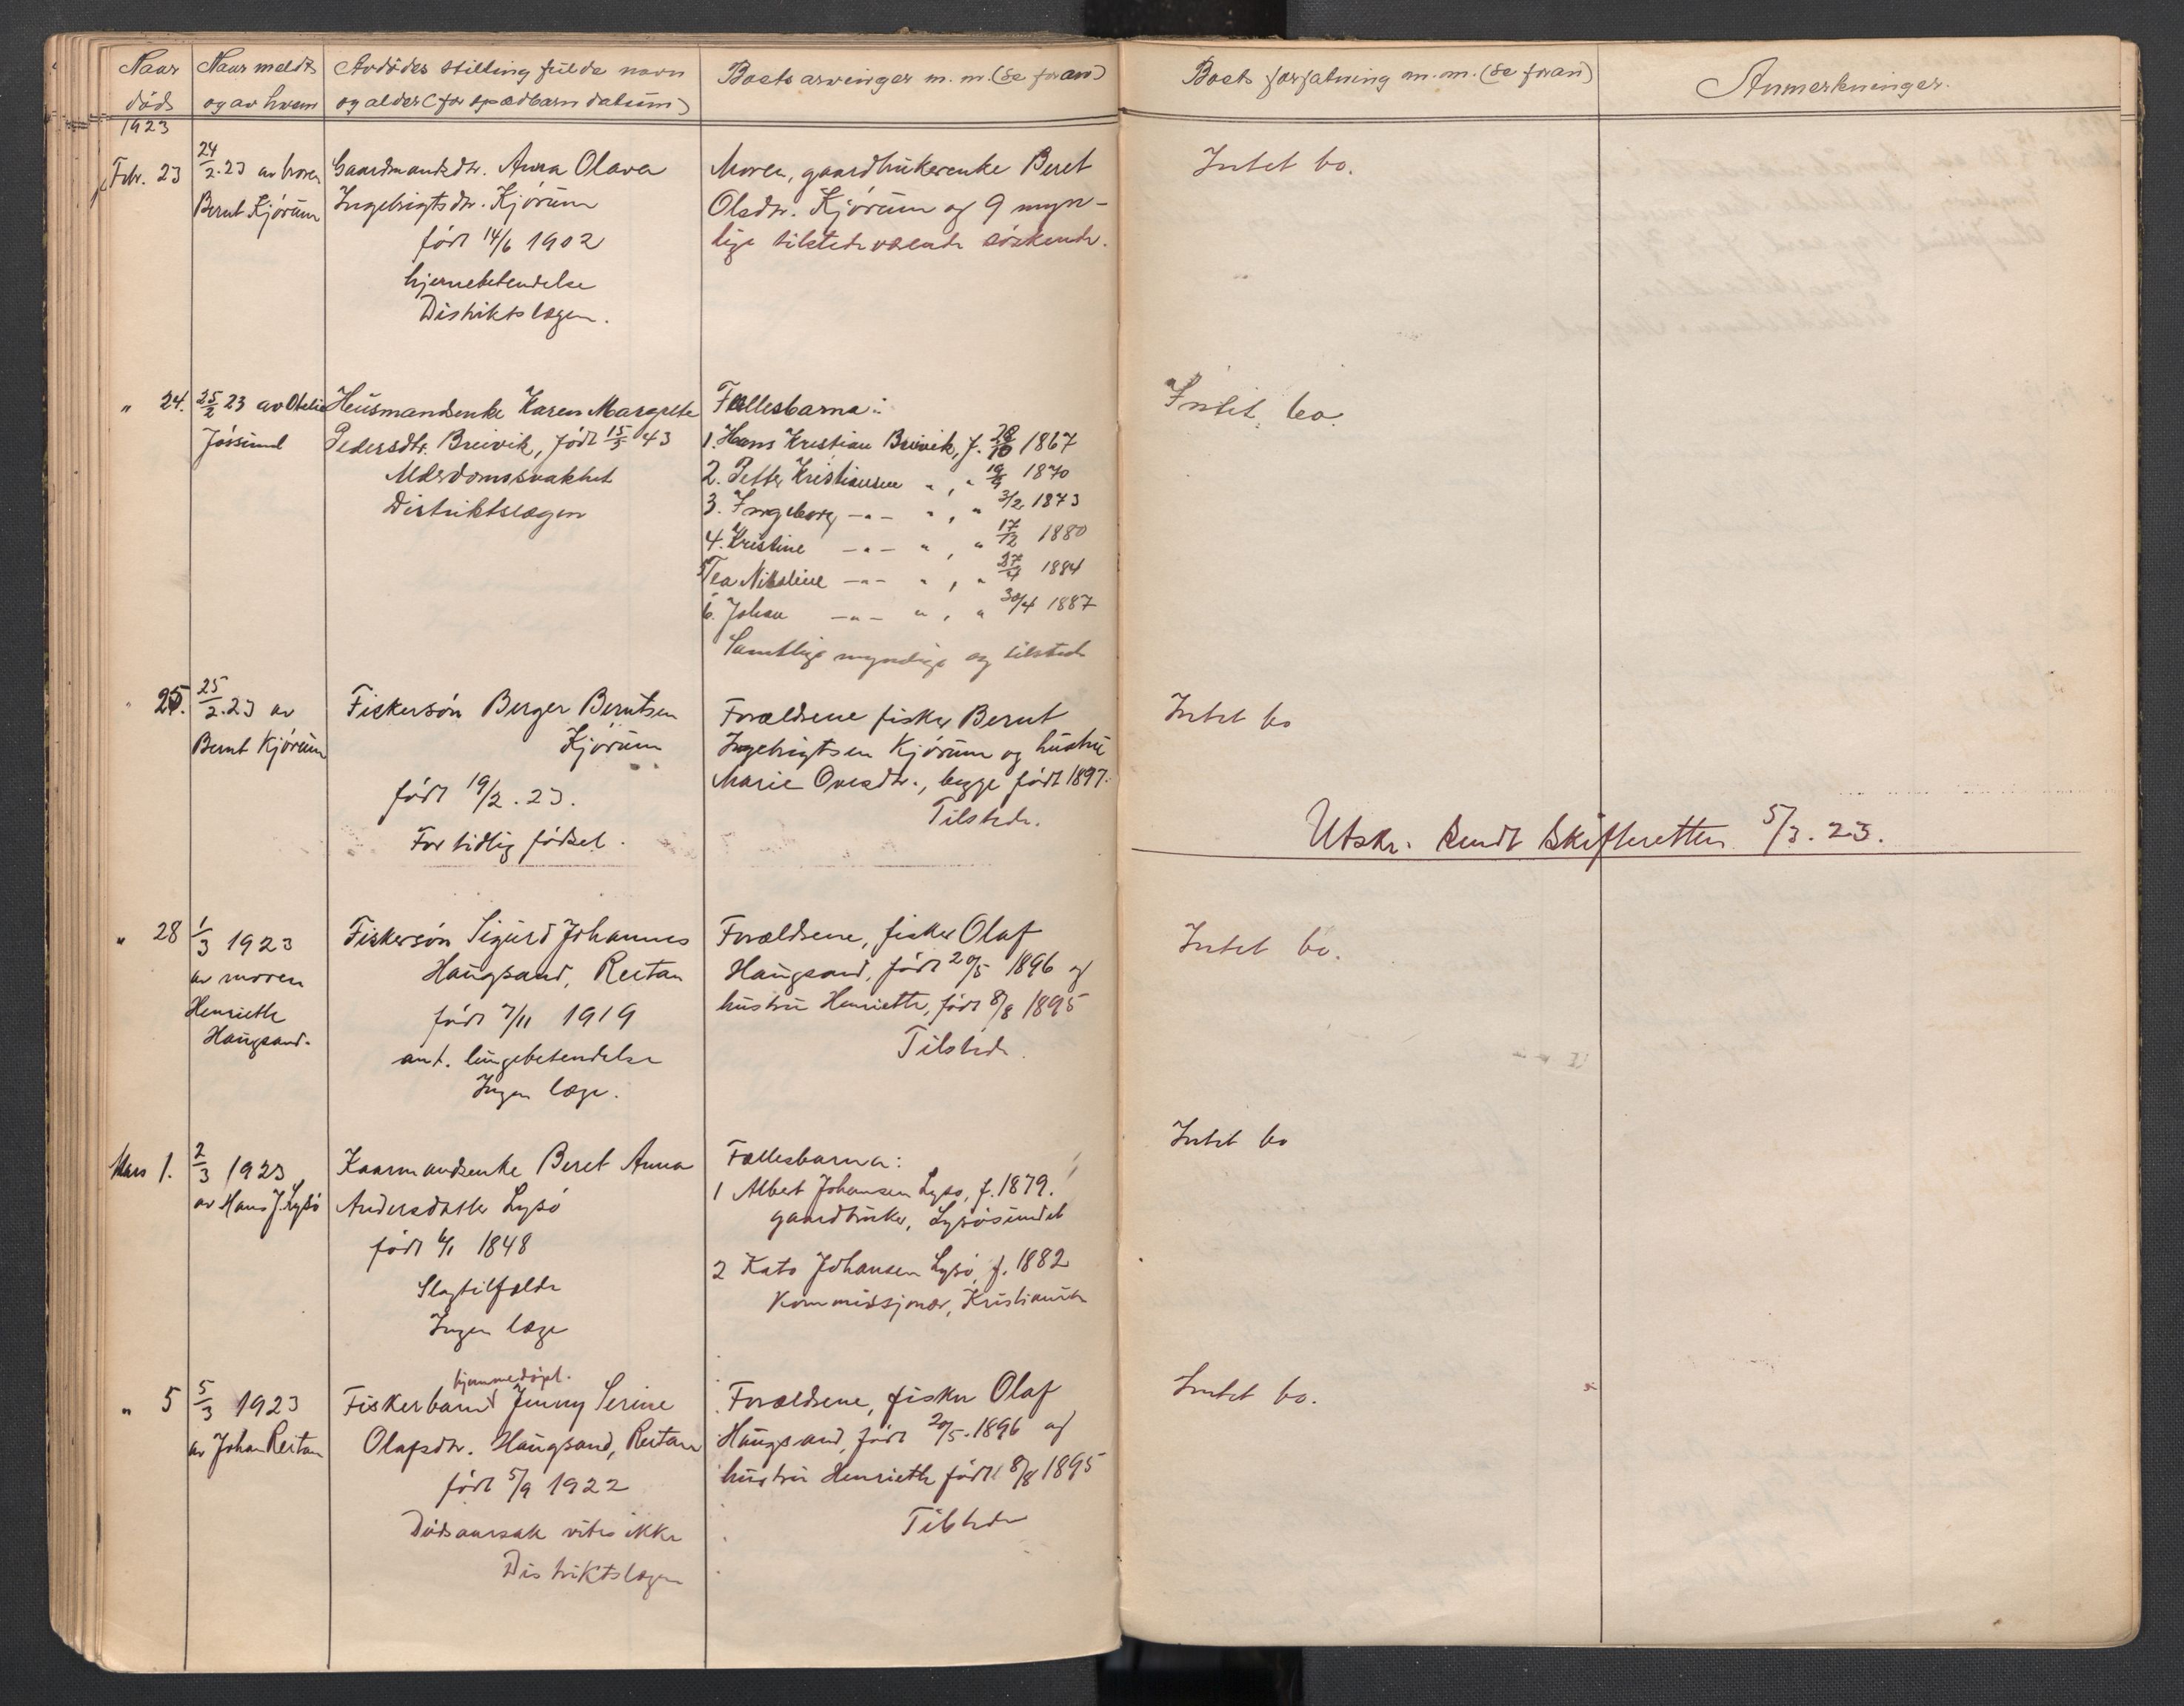 Naar døds
Naar meldt og av hvem
Avdødes stilling fulde navn og alder (for spædbarn datum)
Boets arvinger m. m. (Se foran)
Boets forfatning m. m. (Se foran)
Anmerkninger.
1923
Febr. 23
24/2.23 av broren
Bernt Kjørum
Gaardmandsdtr. Anna Olava
Ingebrigtsdtr. Kjørum
født 14/6 1902
hjernebetendelse
Distriktslægen.
Moren, gaardbrukerenke Beret
Olsdtr. Kjørum og 9 myn-
dige tilstedeværende søskende.
Intet bo.
" 24.
25/2 23 av Otelie
Jøssund
Husmandsenke Karen Margrete
Pedersdtr. Breivik, født 15/5 43
Alderdomssvakhet
Distriktslægen
Fællesbarna:
1. Hans Kristian Breivik, f. 28/10 1867
2. Petter Kristiansen " , " 19/4 1870
3. Ingeborg —"— " , " 3/2 1873
4. Kristine —"— " , " 17/12 1880
5 Tea Nikoline —"— " , " 27/4 1884
6. Johan —"— " , " 30/4 1887
Samtlige myndige og tilstede
Intet bo.
" 25.
25/2.23 av
Bernt Kjørum
Fiskersøn Berger Berntsen
Kjørum
født 19/2.23.
For tidlig fødsel.
Forældrene fisker Bernt
Ingebrigtsen Kjørum og hustru
Marie Ovesdtr., begge født 1897.
Tilstede.
Intet bo
Utskr. sendt skifteretten 5/3.23.
" 28
1/3 1923
av moren
Henriette
Haugsand.
Fiskersøn Sigurd Johannes
Haugsand, Reitan
født 7/11 1919
ant. lungebetendelse
Ingen læge.
Forældrene, fisker Olaf
Haugsand, født 20/5 1896 og
hustru Henriette, født 8/8 1895
Tilstede.
Intet bo.
Mars 1.
2/3 1923
av Hans J. Lysø
Kaarmandsenke Beret Anna
Andersdatter Lysø
født 6/1 1848
Slagtilfælde
Ingen læge
Fællesbarna:
1 Albert Johansen Lysø, f. 1879.
gaardbruker, Lysøsundet
2 Kato Johansen Lysø, f. 1882
Kommissjonær, Kristiania
Intet bo
" 5
5/3 1923
av Johan Reitan
hjemmedøpt.
Fiskerbarn Jenny Serine
Olafsdtr. Haugsand, Reitan
født 5/9 1922
Dødsaarsak vites ikke
Distriktslægen
Forældrene, fisker Olaf
Haugsand, født 20/5.1896 og
hustru Henriette født 8/8 1895
Tilstede
Intet bo.